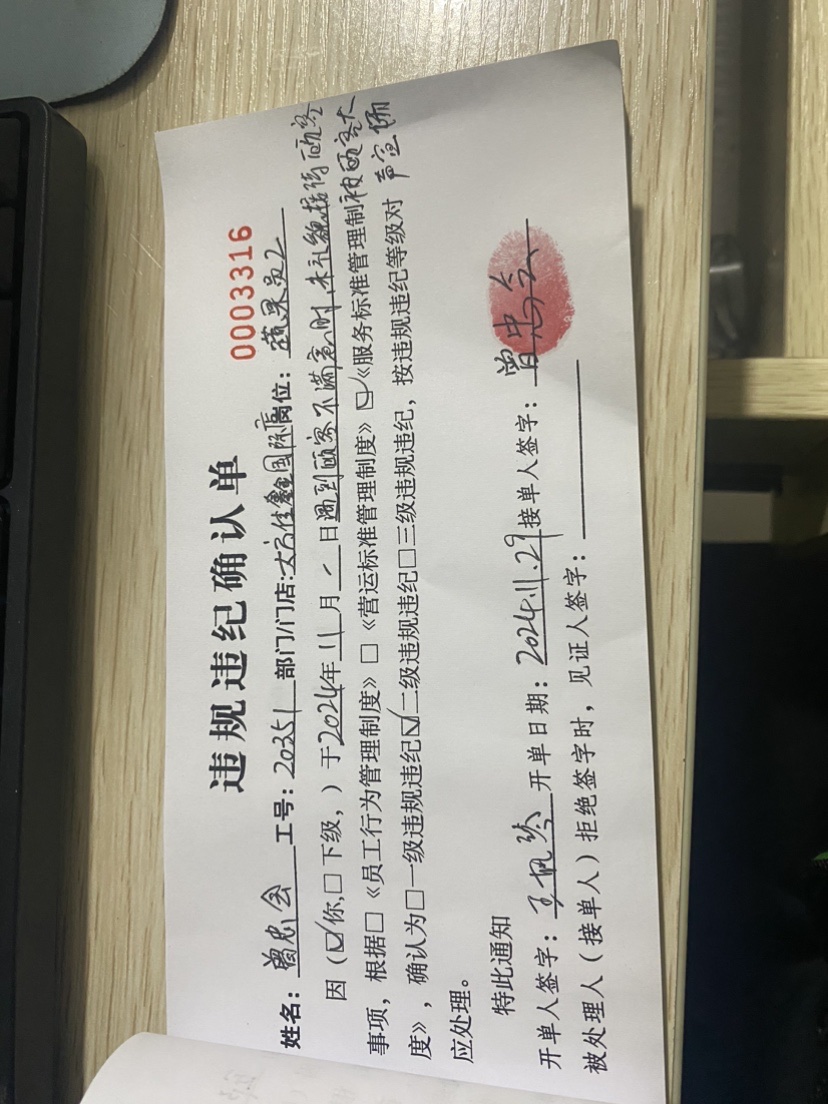 违规违纪确认单
0003316
姓名：曾忠会 工号：20351 部门/门店:大方佳鑫国际店岗位：蔬果员工
因（☑你,□下级，）于2024年11月 日遇到顾客不满意时,未礼貌接待顾客
事项，根据□《员工行为管理制度》□《营运标准管理制度》☑《服务标准管理制 被顾客大
度》，确认为□一级违规违纪☑二级违规违纪□三级违规违纪，按违规违纪等级对 声宣
应处理。
特此通知
开单人签字：王帆 开单日期：2024.11.29 接单人签字：曾忠会
被处理人（接单人）拒绝签字时，见证人签字：